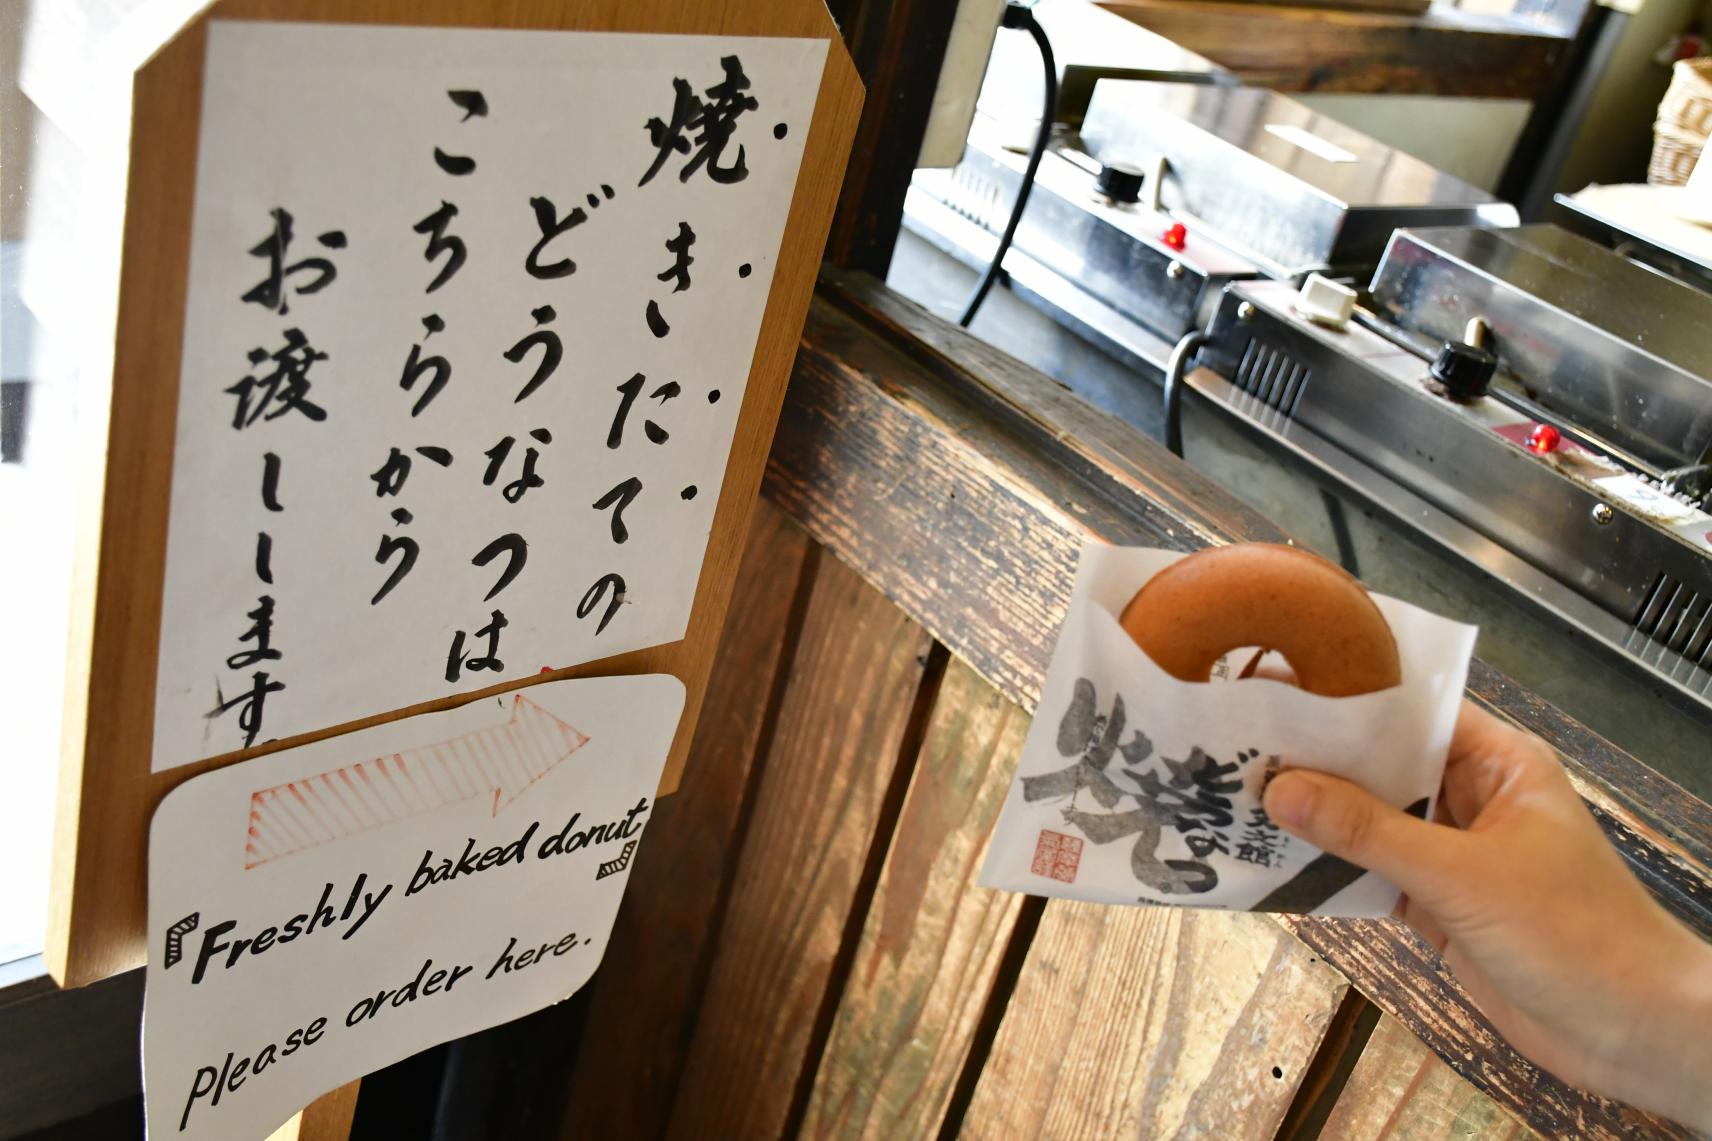 焼きたての
どうなつは
こちらから
お渡しします
『Freshly baked donut』
please order here.
焼
どうなつ